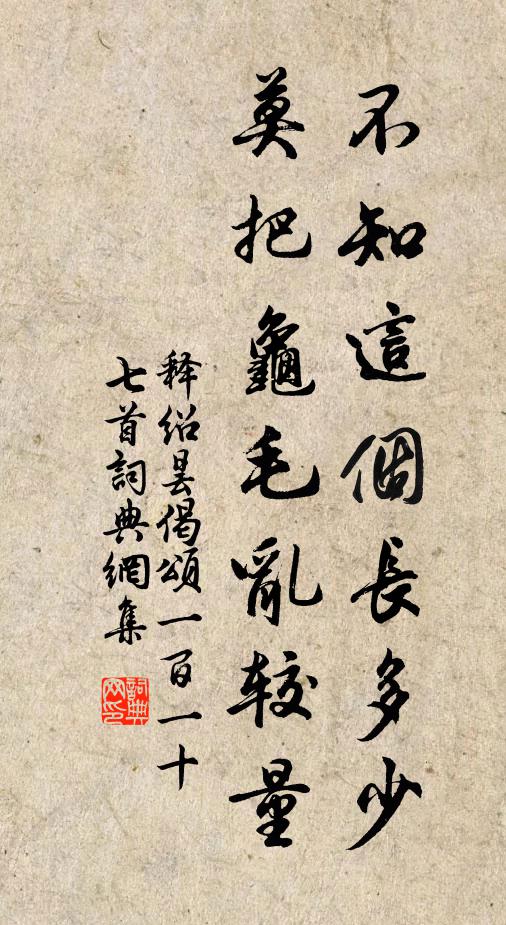 不知這個長多少
莫把龜毛亂較量
释绍昙偈頌一百一十
七首詞典網集
詞典网印